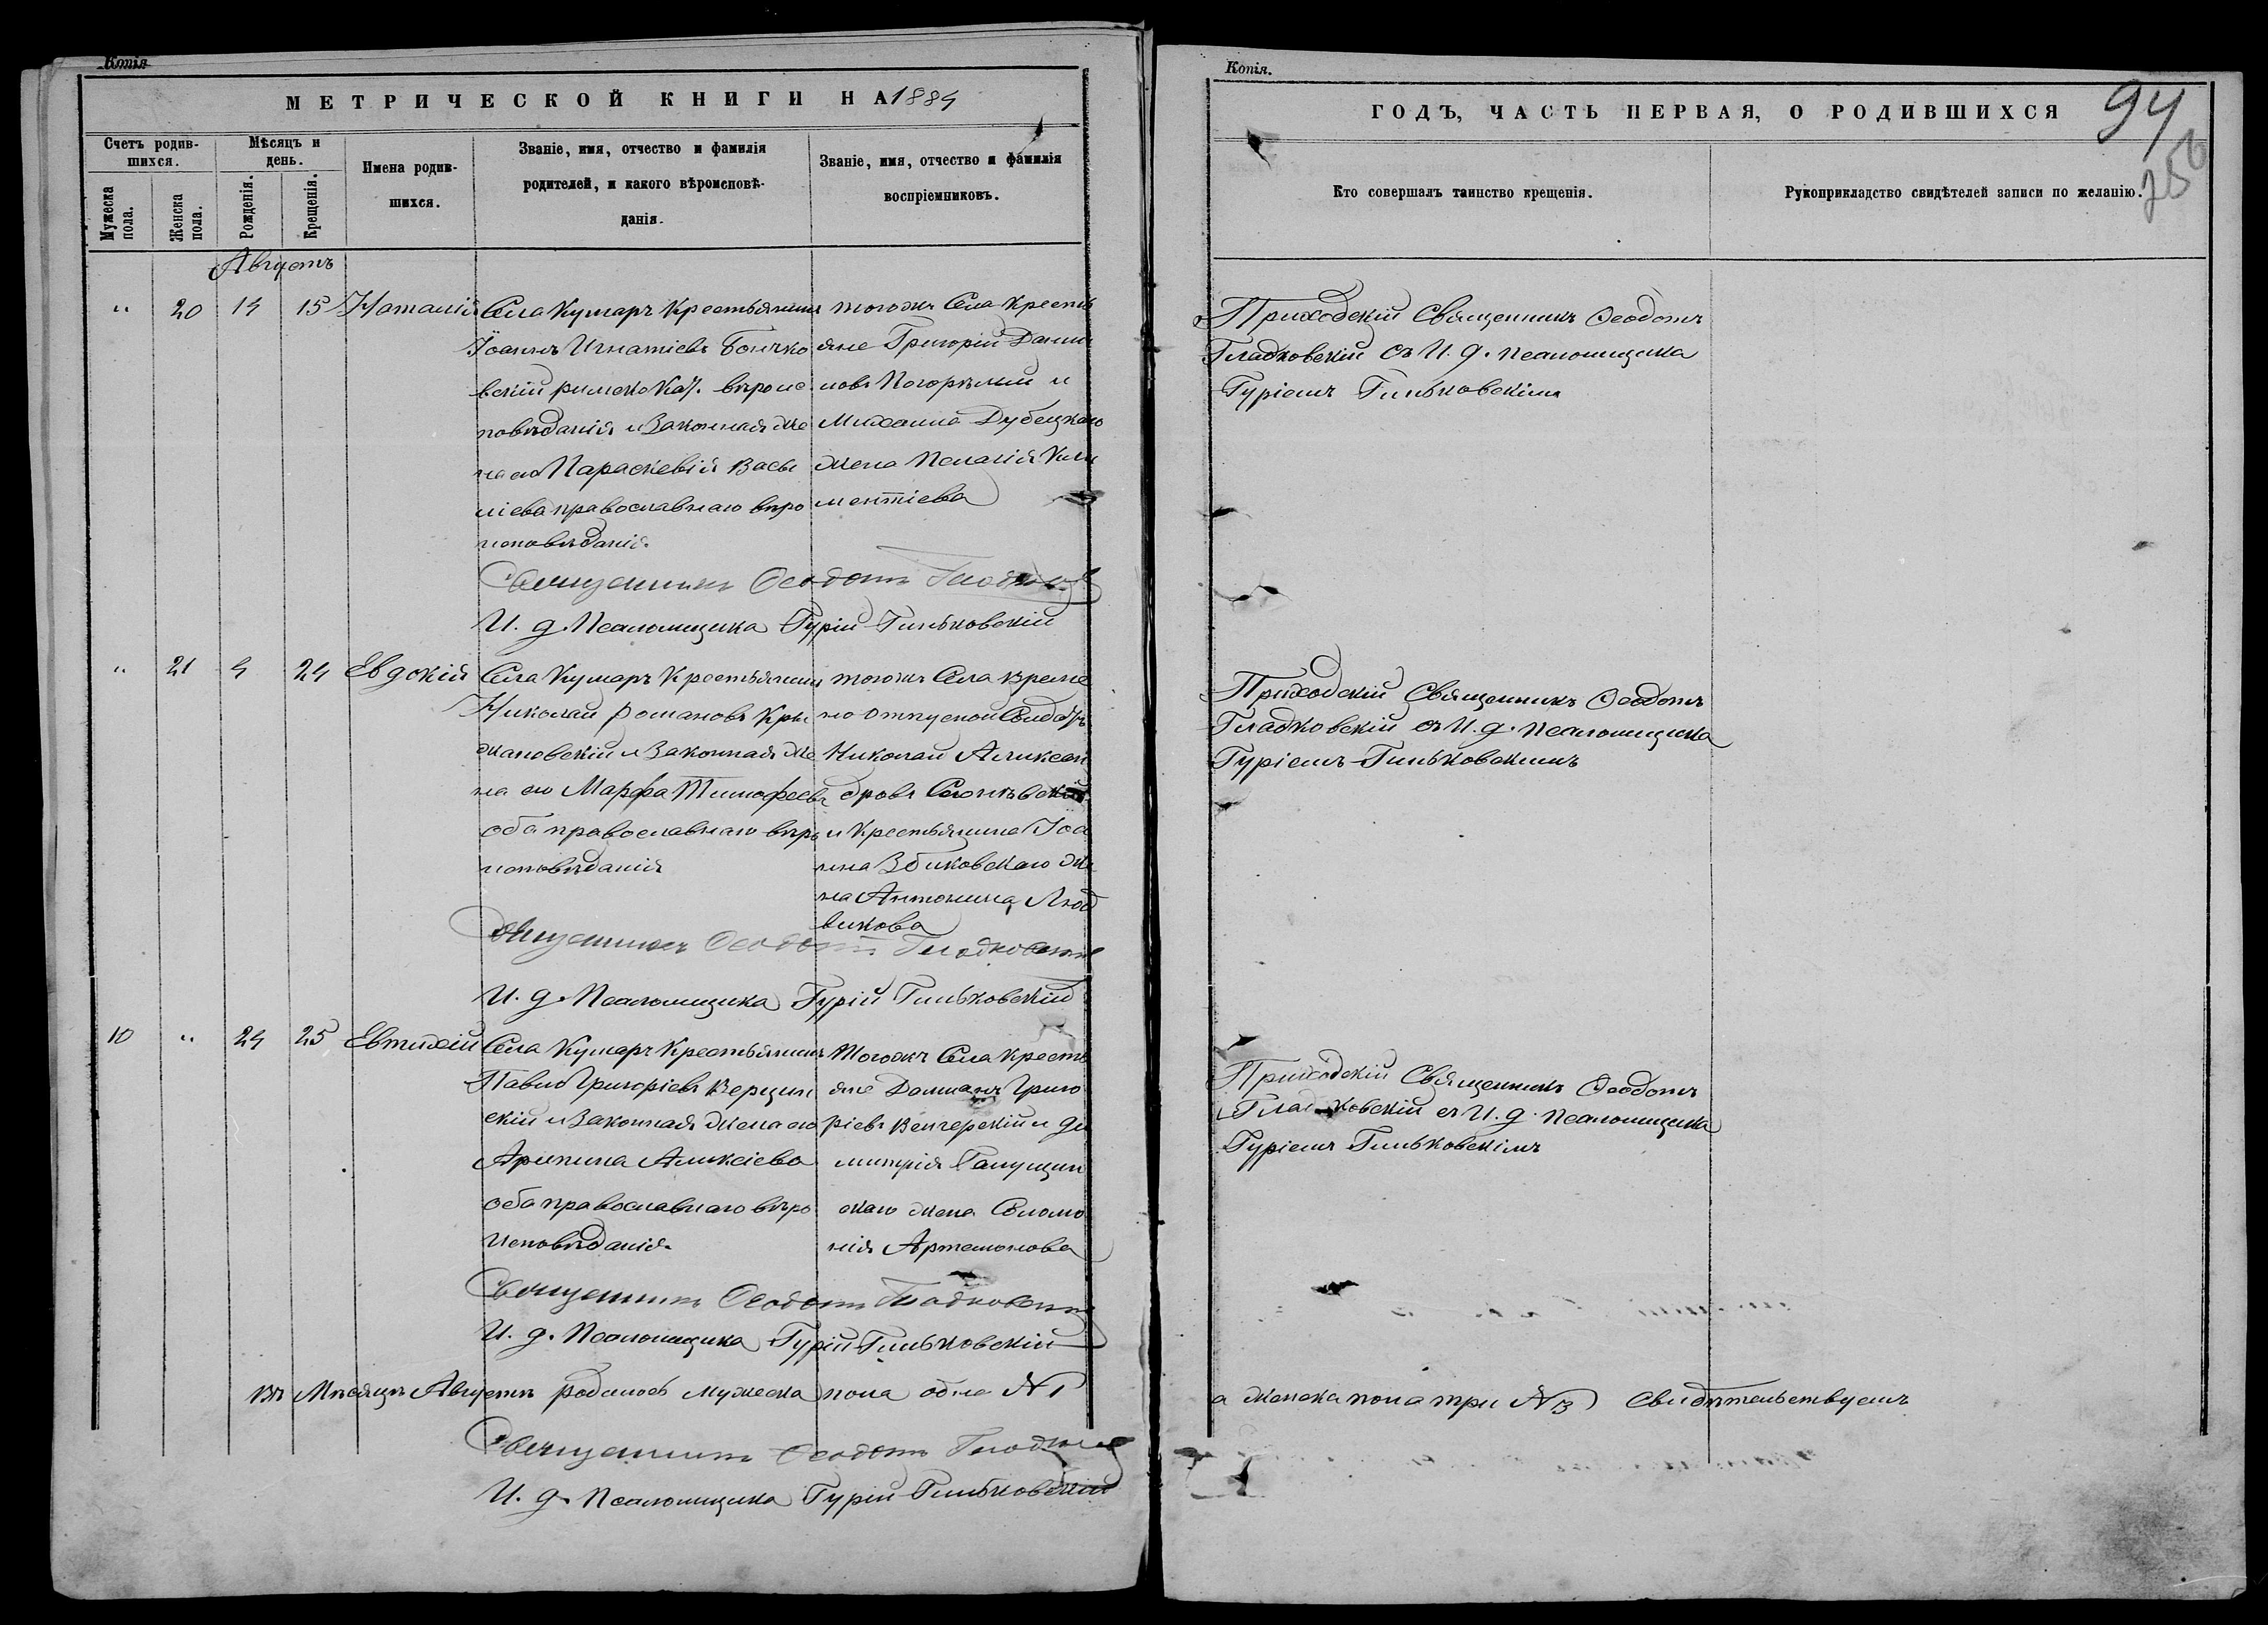 Копія
МЕТРИЧЕСКОЙ КНИГИ НА 1884
Счетъ родив-
шихся.
Мѣсяцъ и
день.
Имена родив-
шихся.
Званіе, имя, отчество и фамилія
родителей, и какого вѣроисповѣ-
данія.
Званіе, имя, отчество и фамилія
воспріемниковъ.
Мужеска
пола.
Женска
пола.
Рожденія.
Крещенія.
Августъ
" 20 14 15 Наталія
Села Кумаръ Крестьянинъ
Іоаннъ Игнатіевъ
вскій римско Каѳ. вѣроис
повѣданія и Законная же
на его Параскевія Васи
ліева православнаго вѣро
исповѣданія.
тогожъ Села Кресть
яне Григорій Дани
ловъ Погорѣлый и
Михаила Дубецкаго
жена Пелагія Кли
ментіева
Священникъ Ѳеодотъ Гладковскій
И. д. Псаломщика Гурій Гиньковскій
" 21 4 24 Евдокія
Села Кумаръ Крестьянинъ
Николай Романовъ Кры
жановскій и Законная Же
на его Марфа Тимофеева
оба православнаго вѣро
исповѣданія
тогожъ Села време
но отпускной Солдатъ
Николай Аликсан
дровъ
и Крестьянина Іоа
нна Збиковскаго же
на Антонина Люд
викова
Священникъ Ѳеодотъ Гладковскій
И. д. Псаломщика Гурій Гиньковскій
10 " 24 25 Евтихій
Села Кумаръ Крестьянинъ
Павелъ Григоріевъ
скій и Законная Жена его
Арипина Аликсіева
оба православнаго вѣро
исповѣданія.
Тогожъ Села Кресть
яне Григо
ріевъ Венгерскій и Ди
митрія Галущин
скаго жена Соломо
нія Артемонова
Священникъ Ѳеодотъ Гладковскій
И. д. Псаломщика Гурій Гиньковскій
Въ Мѣсяцѣ Августѣ родилось мужеска пола одно №1
Священникъ Ѳеодотъ Гладковскій
И. д. Псаломщика Гурій Гиньковскій
Копія.
ГОДЪ, ЧАСТЬ ПЕРВАЯ, О РОДИВШИХСЯ
94
Кто совершалъ таинство крещенія.
Рукоприкладство свидѣтелей записи по желанію.
Приходскій Священникъ Ѳеодотъ
Гладковскій съ И. д. псаломщика
Гуріемъ Гиньковскімъ
Приходскій Священникъ Ѳеодотъ
Гладковскій съ И. д. псаломщика
Гуріемъ Гиньковскимъ
Приходскій Священникъ Ѳеодотъ
Гладковскій съ И. д. псаломщика
Гуріемъ Гиньковскімъ
а женска пола три №3 Свидѣтельствуемъ